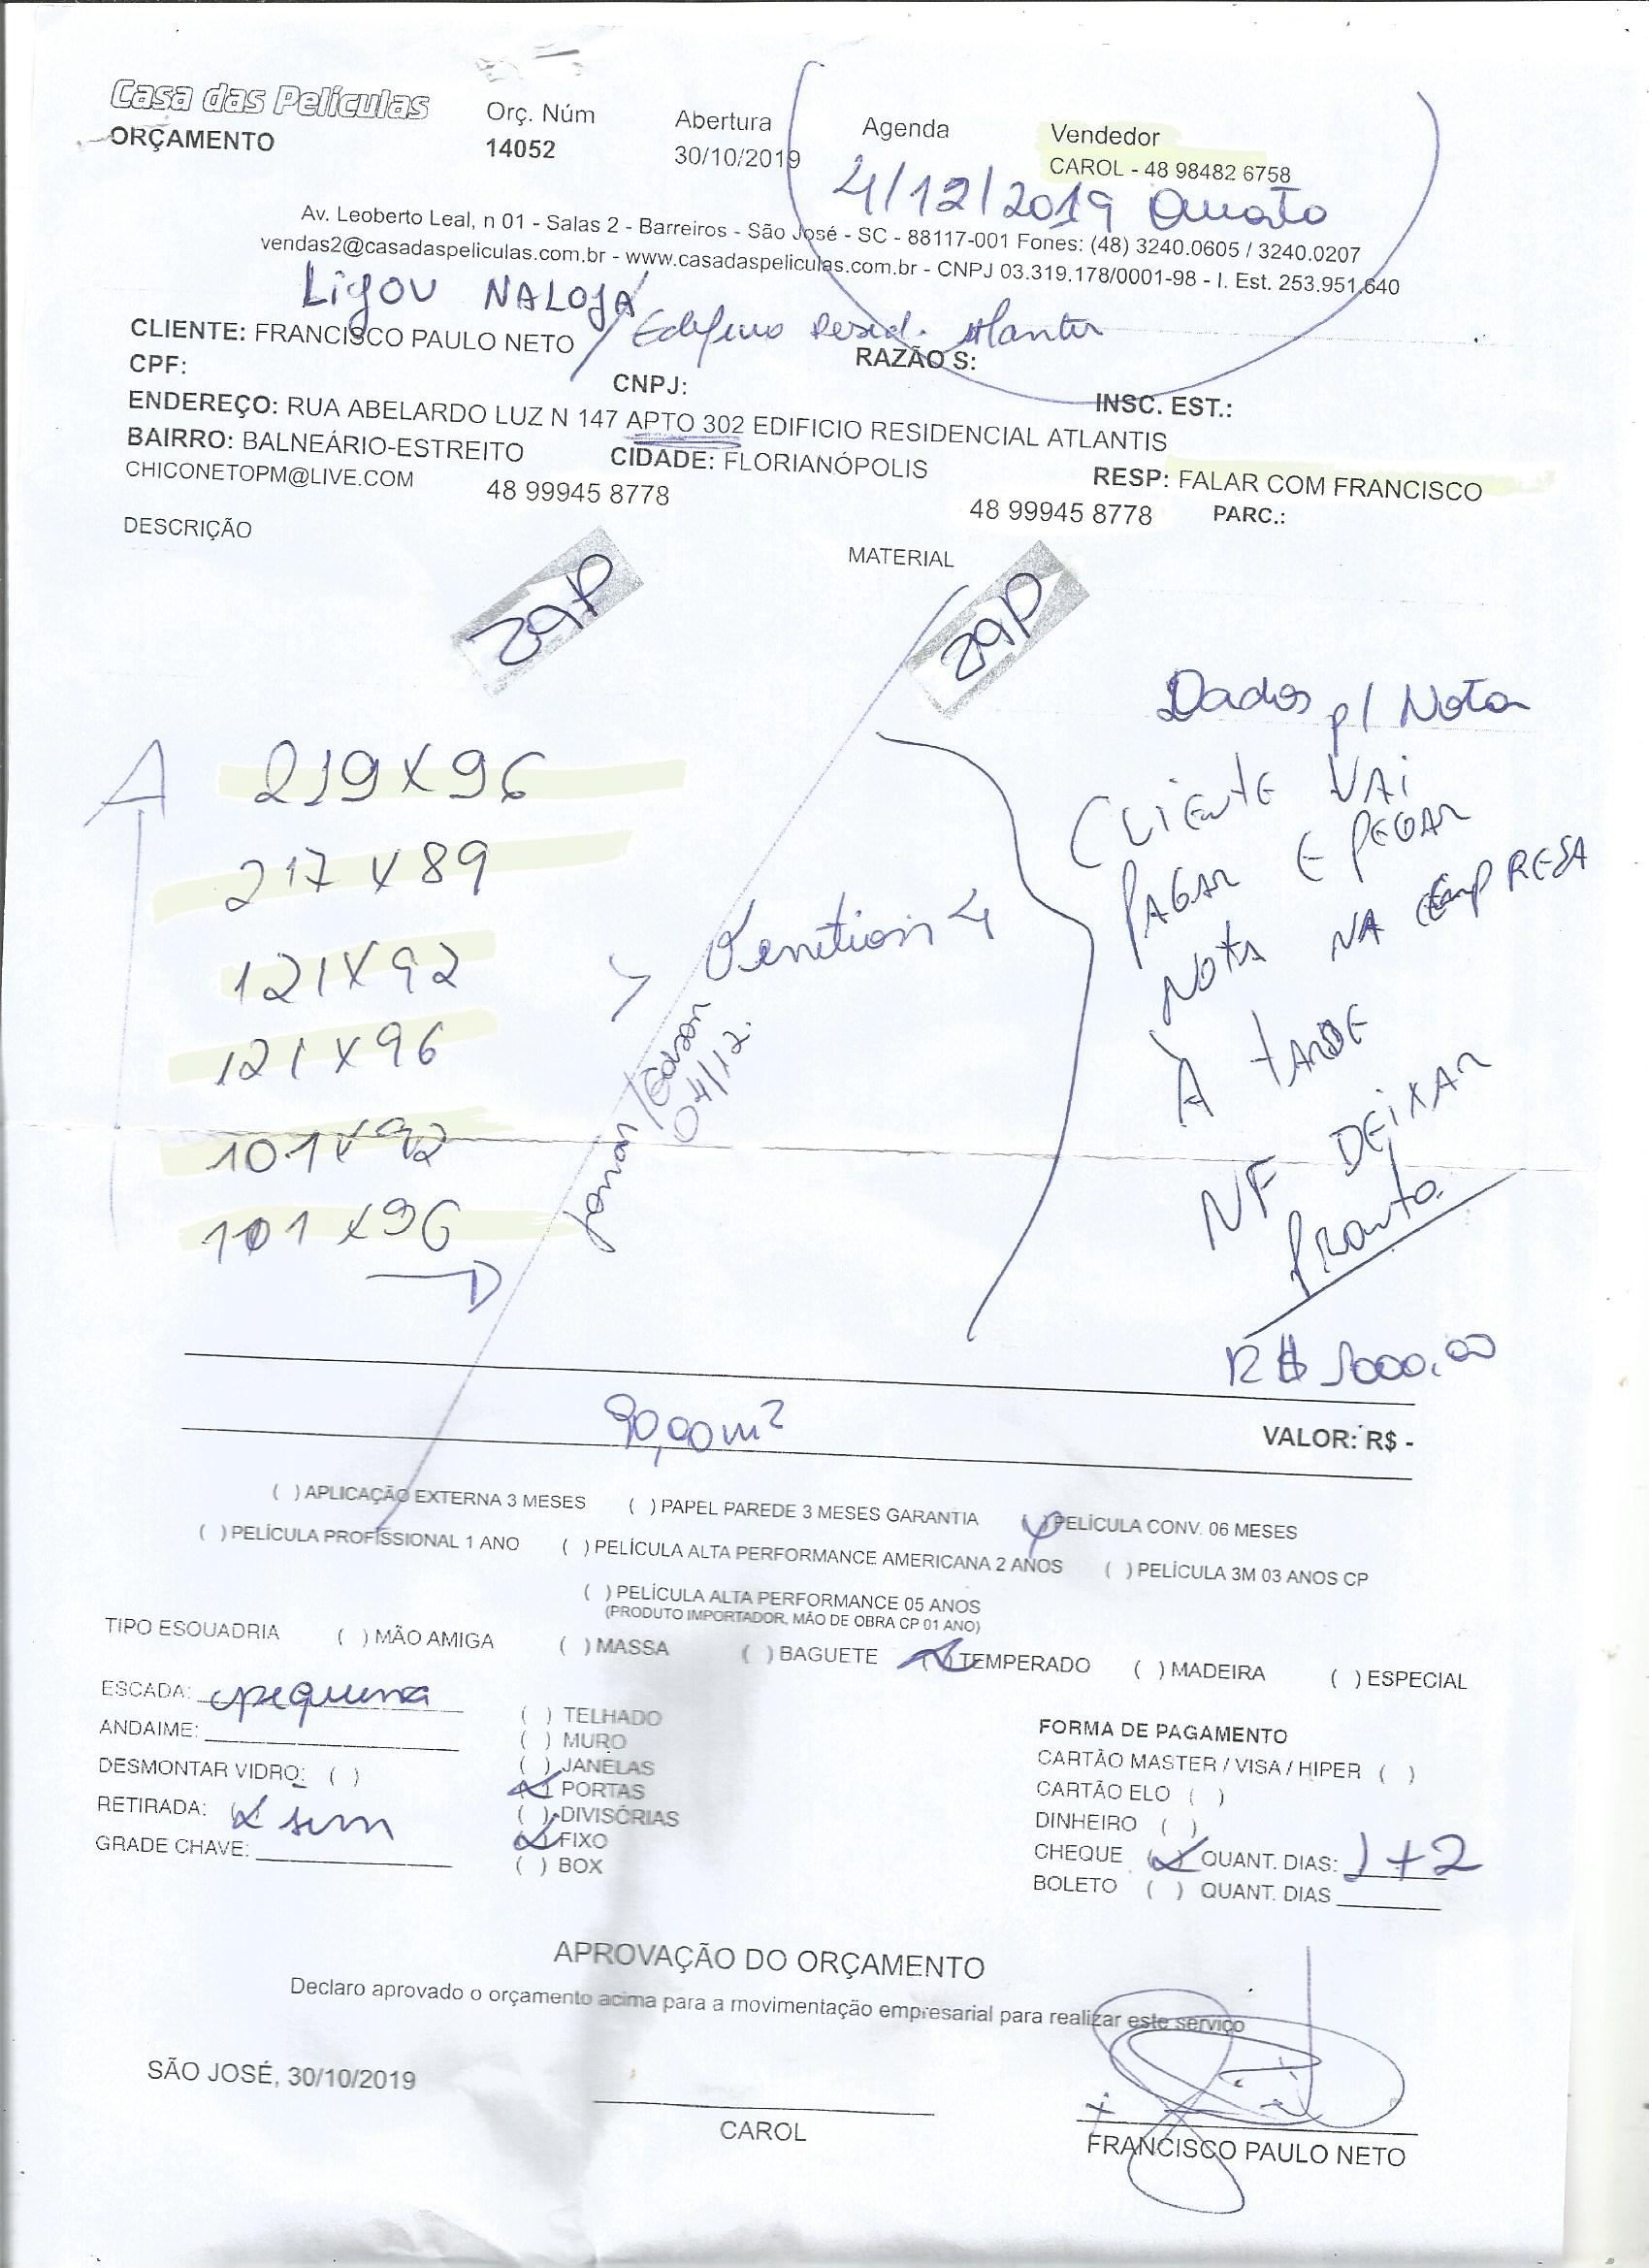 Casa das Películas
ORÇAMENTO
Orç. Núm
14052
Abertura
30/10/2019
Agenda
4/12/2019 Quarta
Vendedor
CAROL - 48 98482 6758
Av. Leoberto Leal, n 01 - Salas 2 - Barreiros - São José - SC - 88117-001 Fones: (48) 3240.0605 / 3240.0207
vendas2@casadaspeliculas.com.br - www.casadaspeliculas.com.br - CNPJ 03.319.178/0001-98 - I. Est. 253.951.640
LIGOU NA LOJA
CLIENTE: FRANCISCO PAULO NETO / Edifício Resid. Atlantis
RAZÃO S:
CPF:
CNPJ:
INSC. EST.:
ENDEREÇO: RUA ABELARDO LUZ N 147 APTO 302 EDIFICIO RESIDENCIAL ATLANTIS
BAIRRO: BALNEÁRIO-ESTREITO
CIDADE: FLORIANÓPOLIS
RESP: FALAR COM FRANCISCO
CHICONETOPM@LIVE.COM
48 99945 8778
48 99945 8778
PARC.:
DESCRIÇÃO
MATERIAL
zap
zap
Dados p/ Nota
A
219 x 96
217 x 89
121 x 92
121 x 96
101 x 92
101 x 96
04/12
CLIENTE VAI
PAGAR E PEGAR
NOTA NA EMPRESA
À TARDE
NF DEIXAR
PRONTA
R$ 1000,00
VALOR: R$ -
( ) APLICAÇÃO EXTERNA 3 MESES ( ) PAPEL PAREDE 3 MESES GARANTIA (x) PELÍCULA CONV. 06 MESES
( ) PELÍCULA PROFISSIONAL 1 ANO ( ) PELÍCULA ALTA PERFORMANCE AMERICANA 2 ANOS ( ) PELÍCULA 3M 03 ANOS CP
( ) PELÍCULA ALTA PERFORMANCE 05 ANOS
(PRODUTO IMPORTADOR, MÃO DE OBRA CP 01 ANO)
TIPO ESQUADRIA ( ) MÃO AMIGA ( ) MASSA ( ) BAGUETE (x) TEMPERADO ( ) MADEIRA ( ) ESPECIAL
ESCADA: pequena
ANDAIME:
DESMONTAR VIDRO: ( )
RETIRADA: (x) sim
GRADE CHAVE:
( ) TELHADO
( ) MURO
( ) JANELAS
(x) PORTAS
( ) DIVISÓRIAS
(x) FIXO
( ) BOX
FORMA DE PAGAMENTO
CARTÃO MASTER / VISA / HIPER ( )
CARTÃO ELO ( )
DINHEIRO ( )
CHEQUE (x) QUANT. DIAS: 1+2
BOLETO ( ) QUANT. DIAS
APROVAÇÃO DO ORÇAMENTO
Declaro aprovado o orçamento acima para a movimentação empresarial para realizar este serviço
SÃO JOSÉ, 30/10/2019
CAROL
x
FRANCISCO PAULO NETO